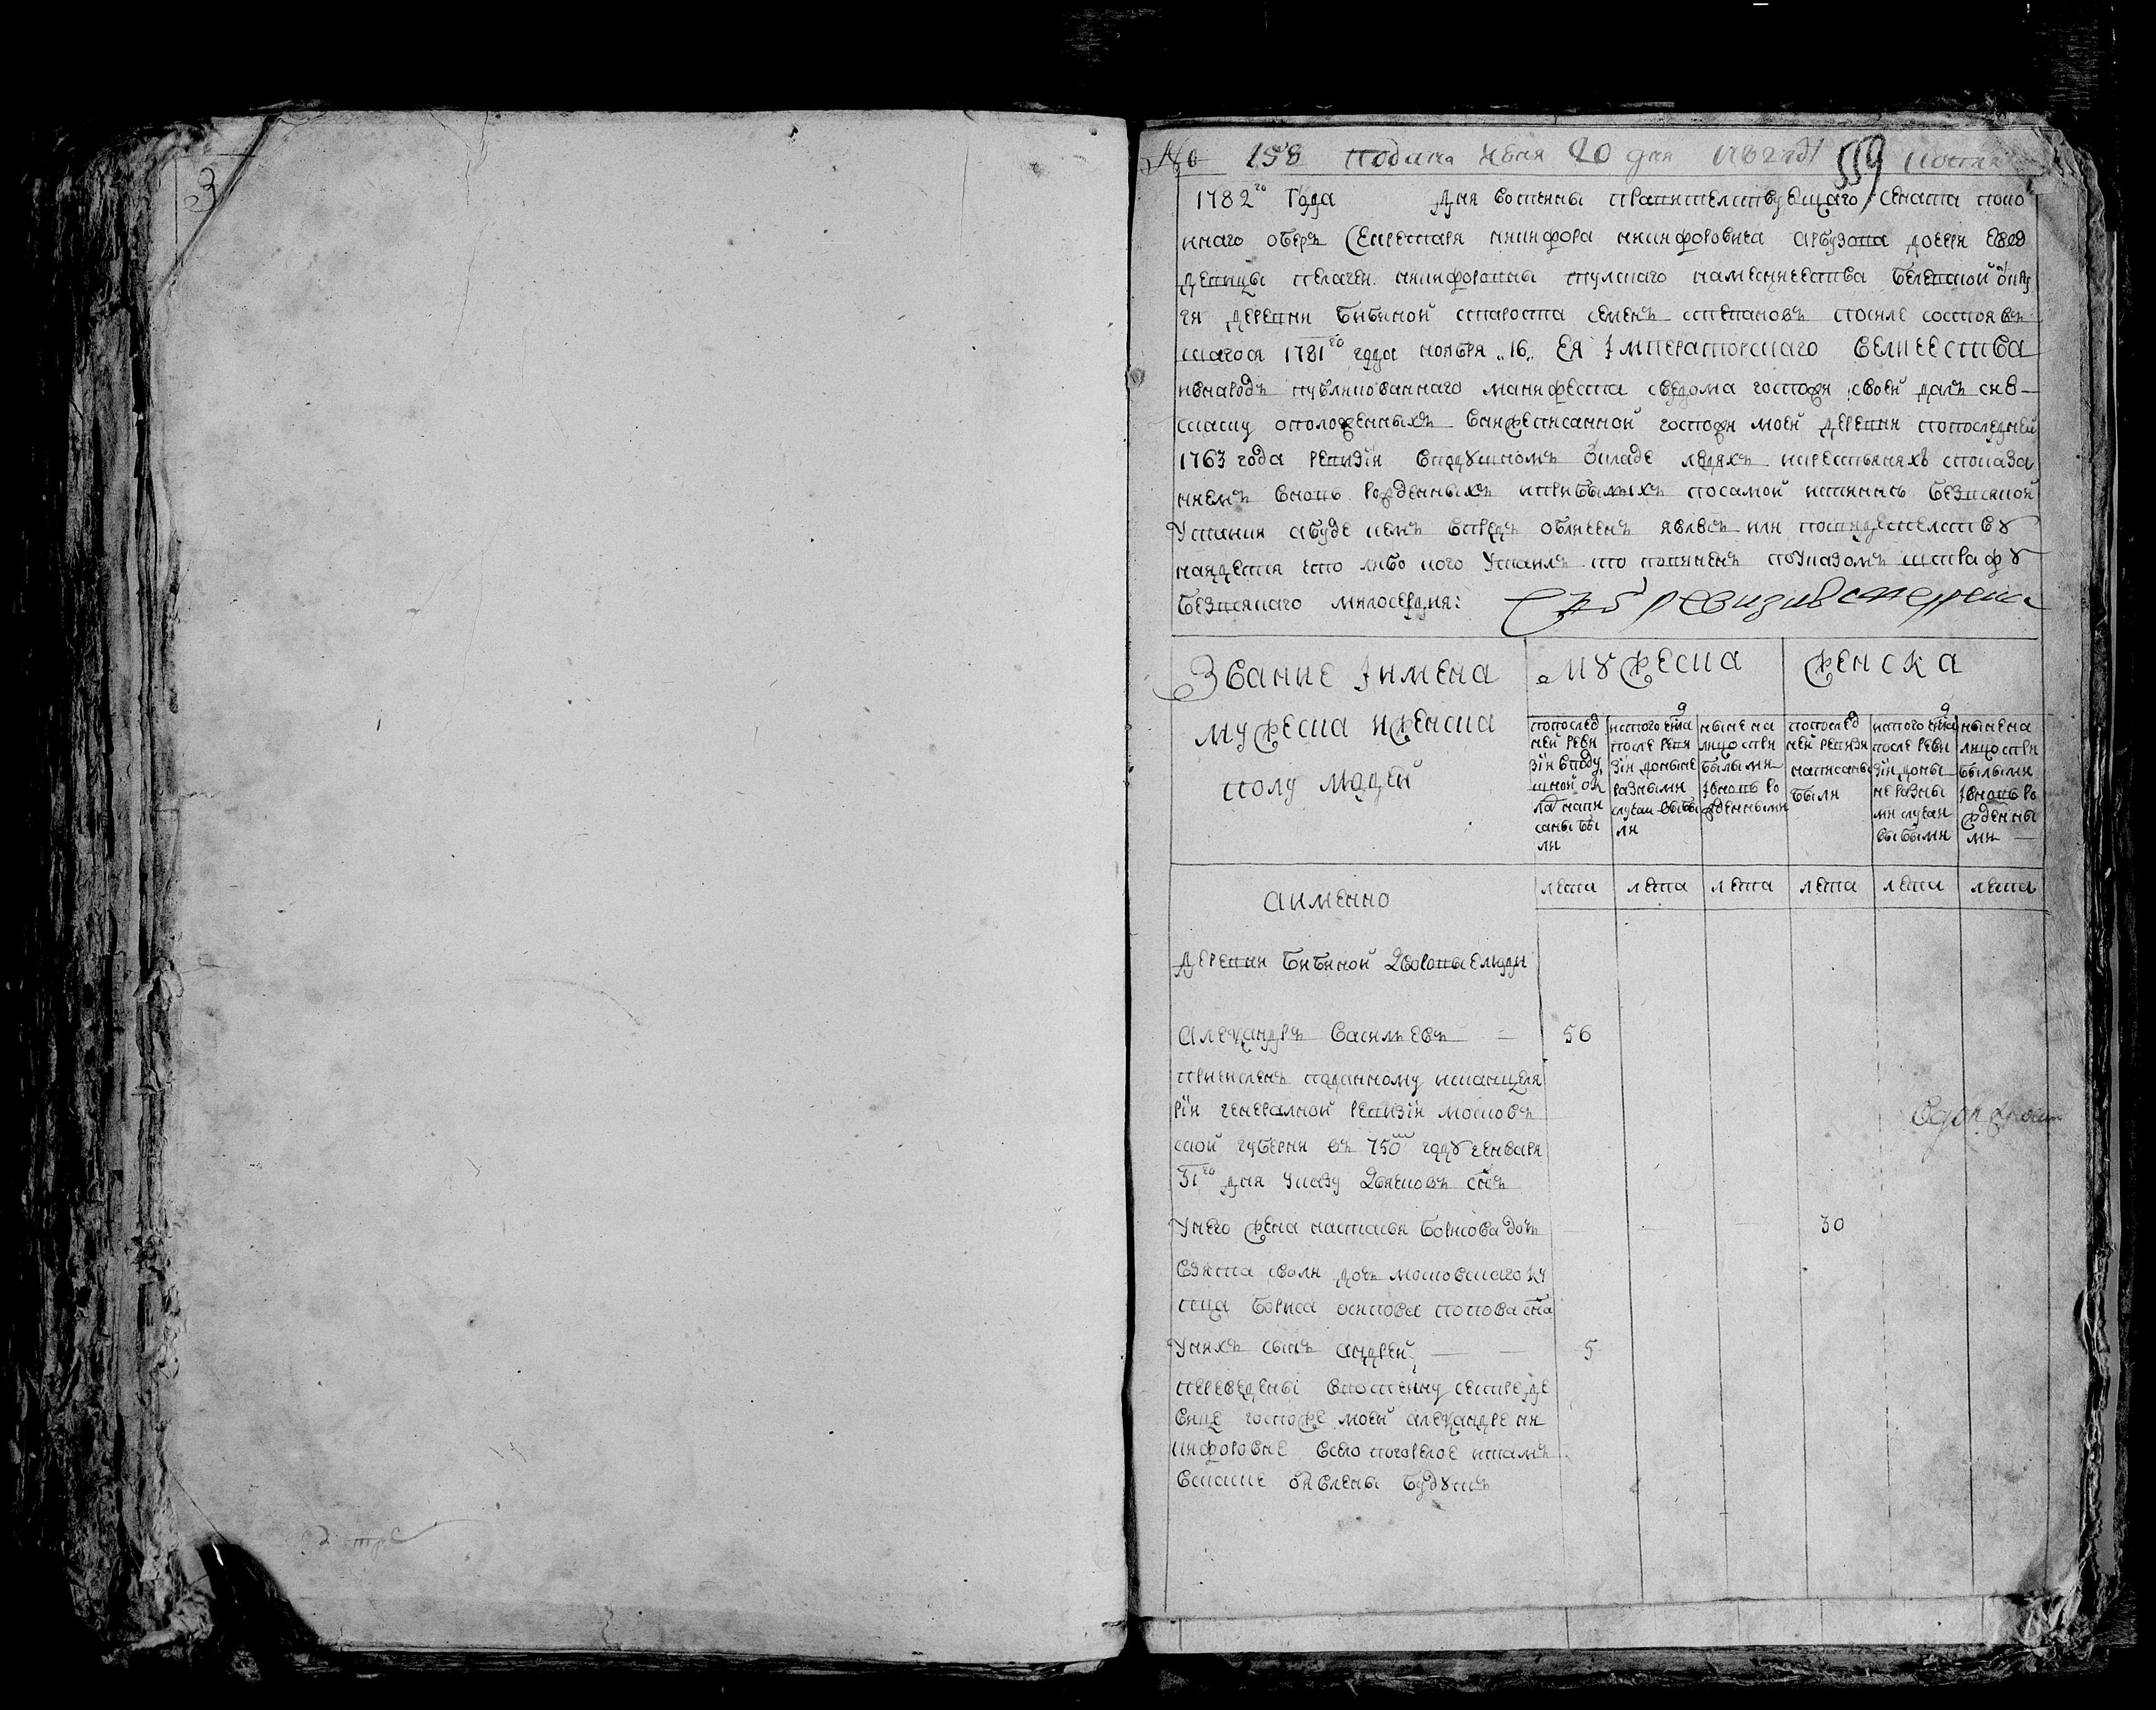 3
№ 158 подана июля 20 дня 1782 год 559
1782го Году дня вотчины правителствующаго сената поко
инаго оберъ секретаря никифора никифоровича арбузова дочери вдов
девицы пелагеи никифоровны тулскаго наместничества белевской окру
ги деревни бибиной староста семенъ степановъ после состоявъ
шагося 1781го года ноября 16 Ея Императорскаго величества
внародъ публикованнаго манифеста сведома госпожи своей далъ сию
скаску оположенныхъ внижеписанной госпожи моей деревни попоследней
1763 года ревизіи вподушномъ окладе людяхъ икрестьянахъ споказа
нием вновь рожденныхъ иприбылыхъ посамой истинне безвсякой
утайки абуде кемъ впредь обличенъ явлюсь или посвидетелству
найдется что либо кого утаилъ то повиненъ поуказомъ штрафу
безвсякаго милосердия:
Звание Iимена
мужеска иженска
полу людей
мужеска
женска
попослед
ней реви
зіи вподу
шной ок
лад напи
саны бы
ли
истого числа
после реви
зіи доныне
разными
случаи выбы
ли
ныне на
лицо спри
былыми
Iвновь ро
жденными
попослед
ней ревизи
написаны
были
истого числа
после реви
зіи доны
не разны
ми случаи
выбыли
ныне на
лицо спри
былыми
Iвновь ро
жденны
ми
лета лета лета лета лета лета
аимянно
деревни бибиной дворовые люди
Александръ васильевъ 56
причисленъ поданному исканцеля
ріи генералной ревизіи московъ
ской губерни въ 750м году генваря
31го дня указу дьячковъ снъ
унего жена настасья борисова дочь 30
взята своли дочь московскаго ку
пца бориса осипова попова сна
унихъ сынъ андрей 5
переведены вотчину сестре де
вице госпоже моей александре ни
кифоровне село погорелое итамъ
вскаске объявлены будутъ